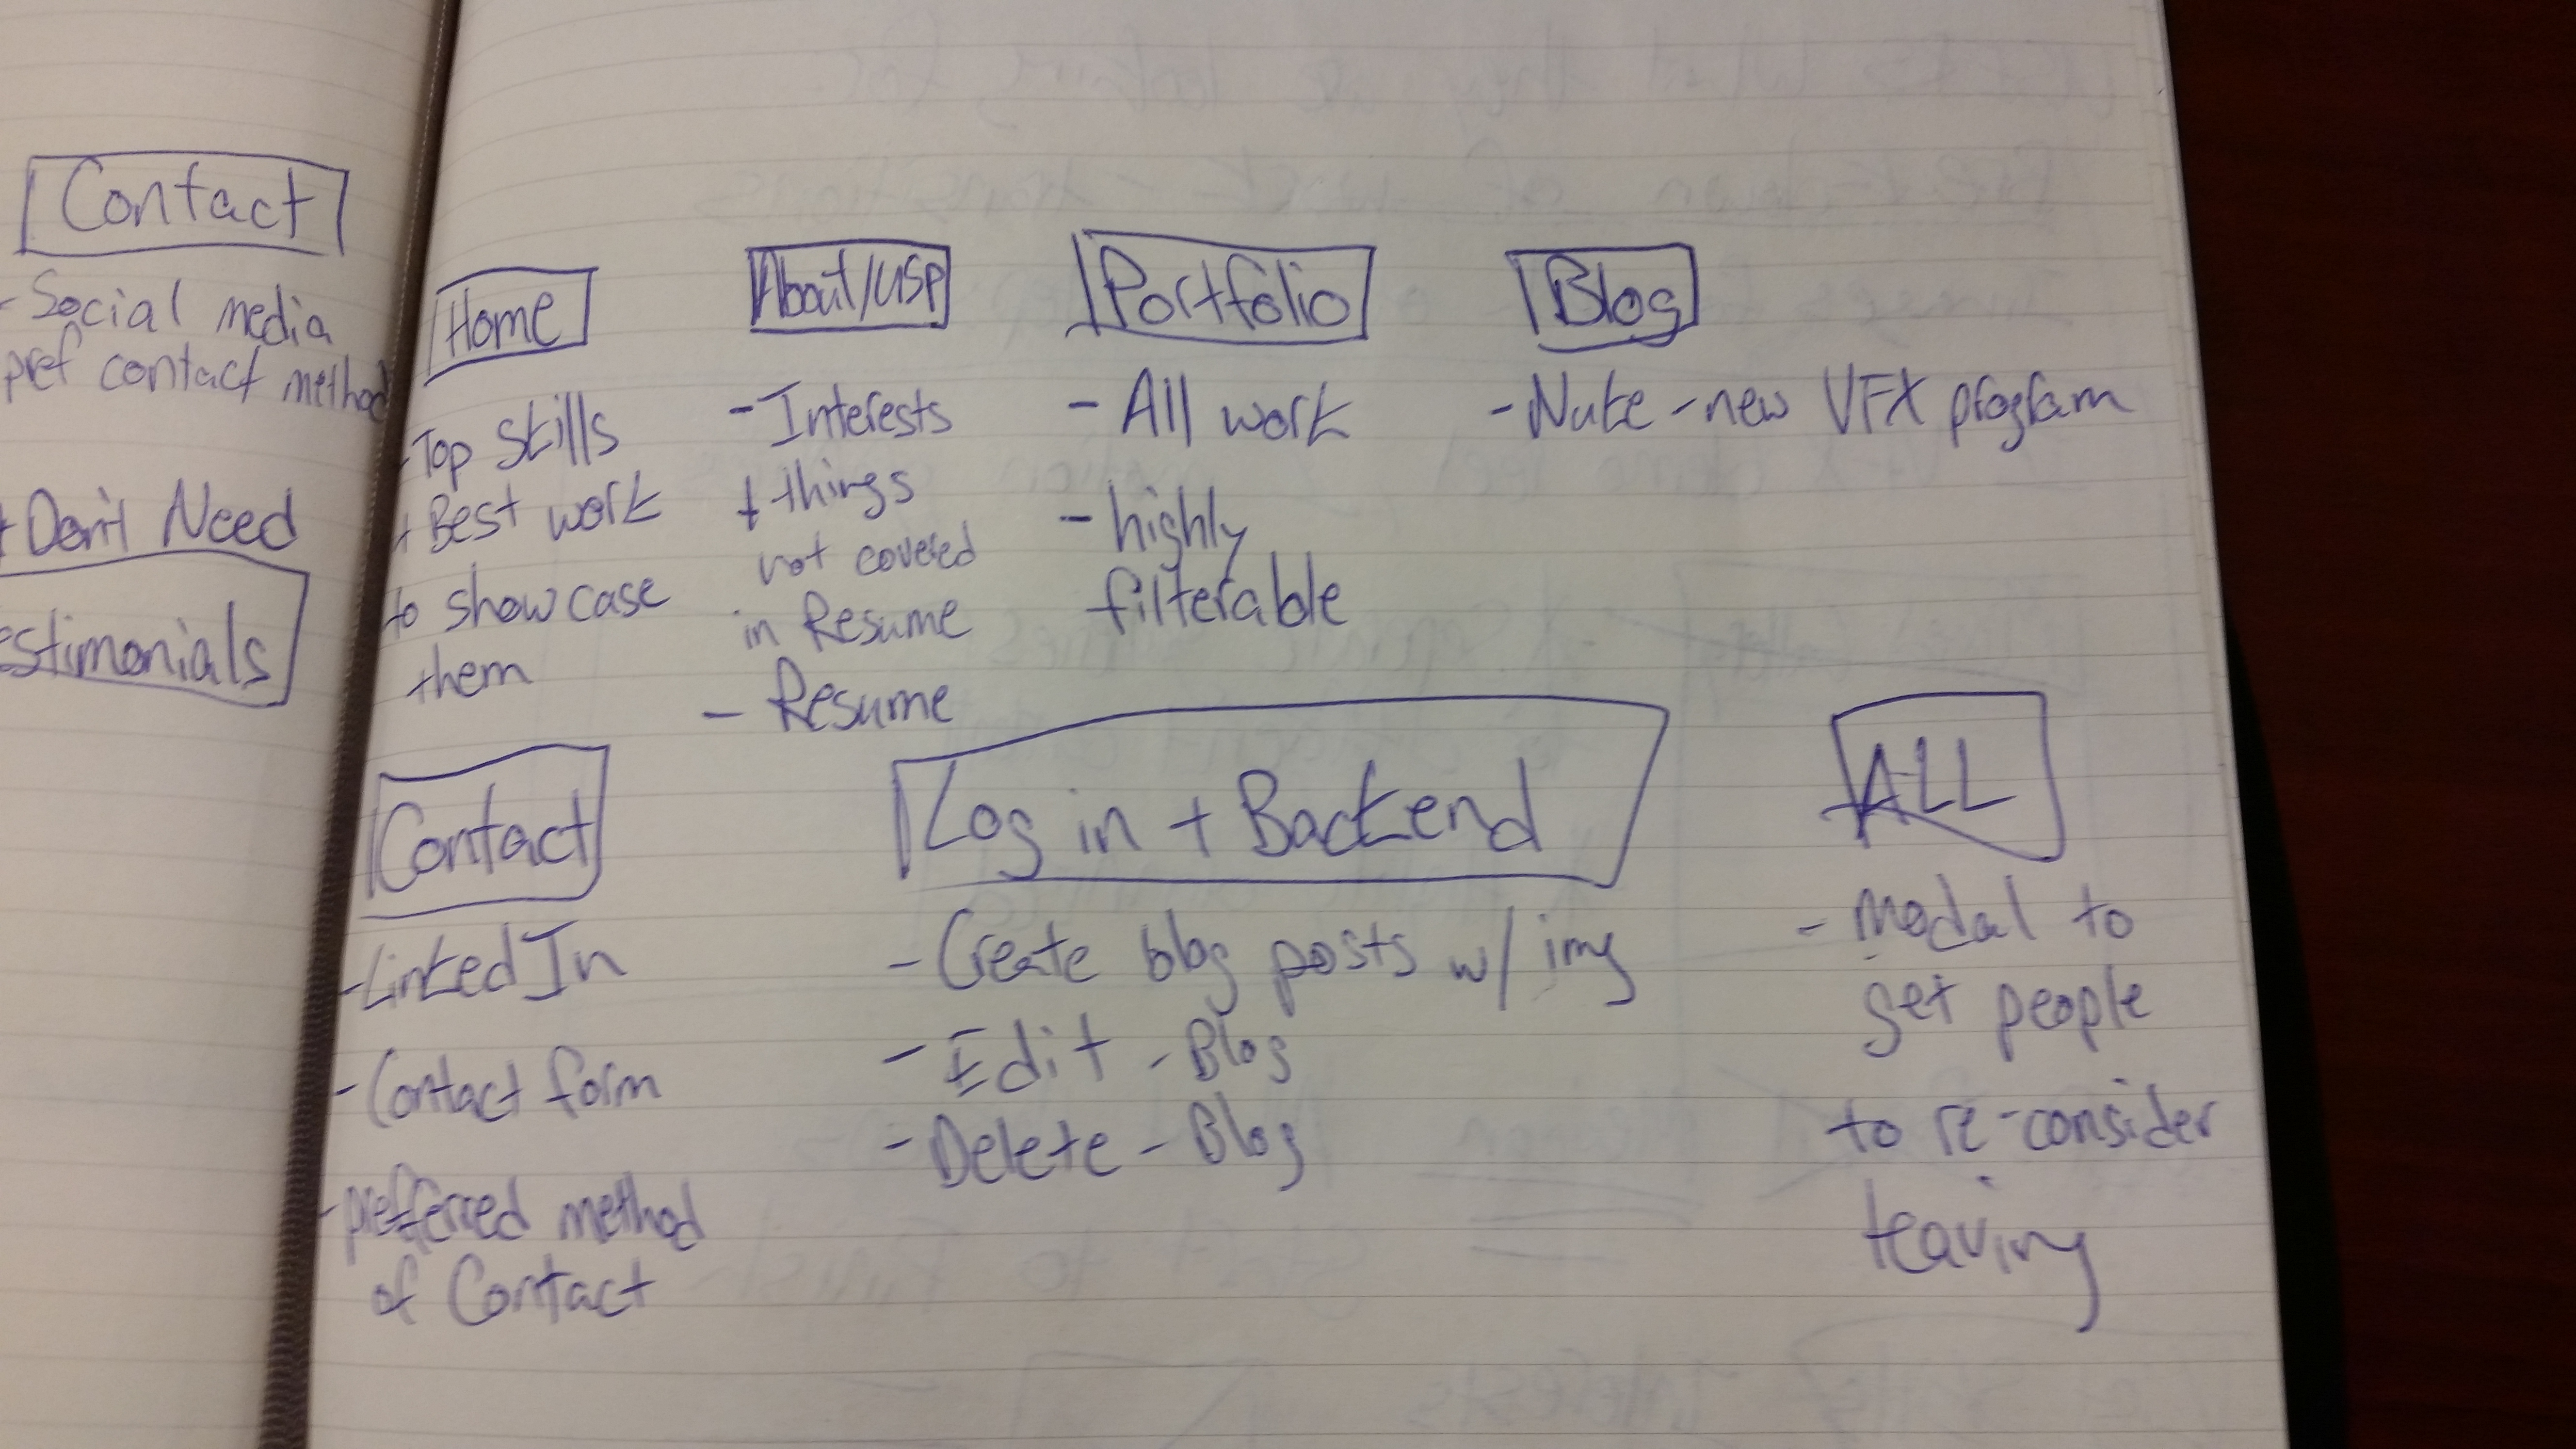 Contact
- Social media
pref contact method
+ Don't Need
Home
- Top Skills
+ Best work
to showcase
them
About/USP
- Interests
+ things
not covered
in Resume
- Resume
Portfolio
- All work
- highly
filterable
Blog
- Nuke - new VFX program
Contact
- LinkedIn
- Contact form
- preferred method
of Contact
Log in + Backend
- Create blog posts w/ img
- Edit - Blog
- Delete - Blog
ALL
- Modal to
get people
to re-consider
leaving